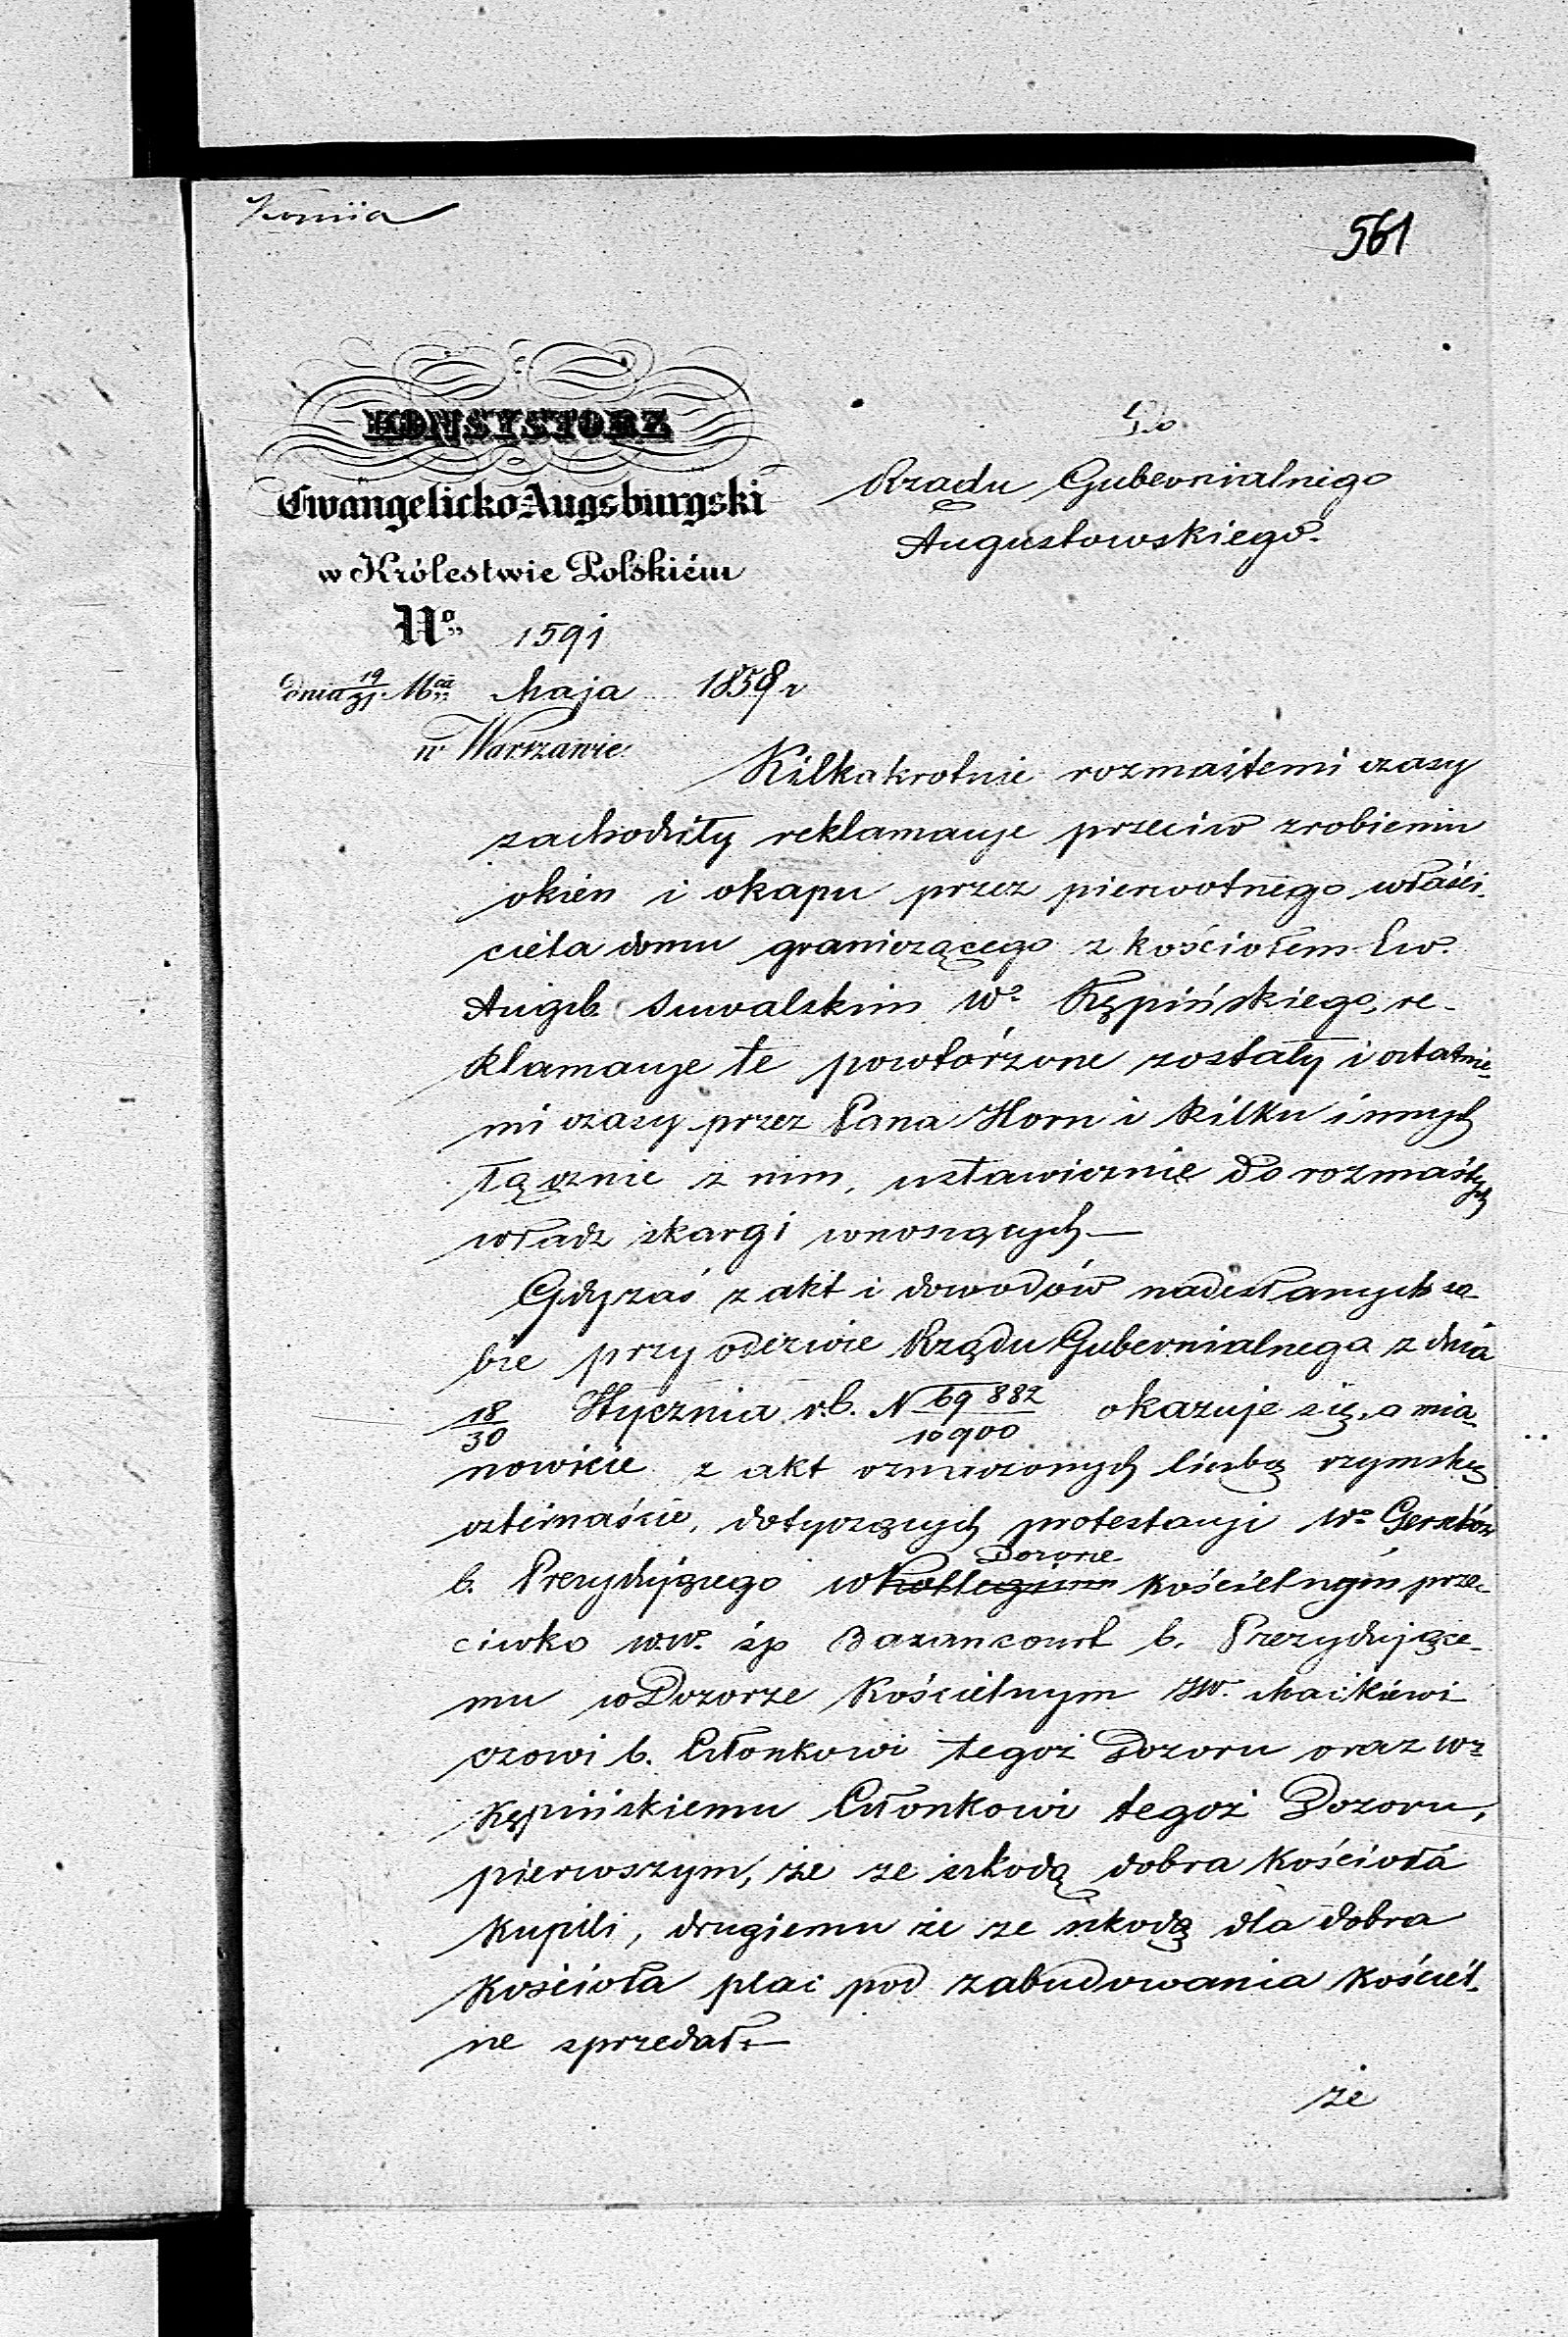 Kopija
561
KONSYSTORZ
Ewangelicko Augsburgski
w Królestwie Polskiém
No. 1591
dnia 19/31 Mca Maja 1858 r
w Warszawie
Do
Rządu Gubernialnego
Augustowskiego.
Kilkakrotnie rozmaitemi czasy
zachodziły reklamacye przeciw zrobieniu
okien i okapu przez pierwotnego właści-
ciela domu graniczącego z kościołem Ew.
Augsb. Suwalskim Wo Kępińskiego, re-
klamacye te powtórzone zostały i ostatnie-
mi czasy przez Pana Horn i kilku innych
łącznie z nim, ustawicznie do rozmaitych
władz skargi wnoszących —
Gdy zaś z akt i dowodów nadesłanych so-
bie przy odezwie Rządu Gubernialnego z dnia
18/30 Stycznia r.b. N 69882/10900 okazuje się, a mia-
nowicie z akt oznaczonych liczbą rzymską
czternaście, dotyczących protestacyi Wo
b. Prezydującego w kollegium Dozorze kościelnym prze-
ciwko w.w. śp Bazancourt b. Prezydujące-
mu w Dozorze Kościelnym W. Maćkiewi
czowi b. Członkowi tegoż Dozoru oraz W.
Kępińskiemu Członkowi tegoż Dozoru,
pierwszym, że ze szkodą dobra Kościoła
kupili, drugiemu że ze szkodą dla dobra
Kościoła plac pod zabudowania kościel-
ne sprzedał. —
że